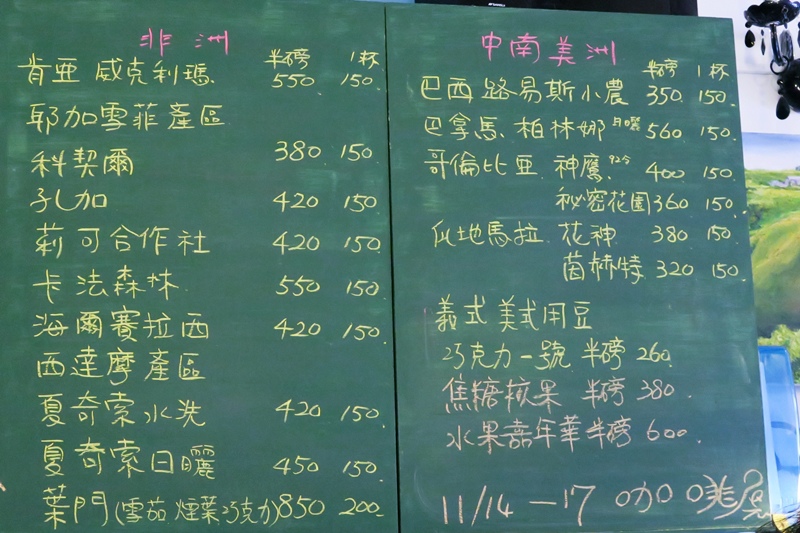 非洲
半磅 1杯
肯亞 威克利瑪 550 150.
耶加雪菲產區
科契爾 380. 150.
孔加 420 150
莉可合作社 420 150.
卡法森林 550 150.
海爾賽拉西 420 150.
西達摩產區
夏奇索水洗 420 150.
夏奇索日曬 450 150.
葉門(雪茄 煙葉 巧克力)850 200.
中南美洲
半磅 1杯
巴西 路易斯小農 350. 150.
巴拿馬 柏林娜 日曬 560 150.
哥倫比亞 神鷹 92分 400 150.
祕密花園 360 150.
瓜地馬拉 花神 380 150.
茵赫特 320 150.
義式 美式用豆
巧克力一號 半磅 260.
焦糖蘋果 半磅 380.
水果嘉年華 半磅 600.
11/14 —17 咖啡